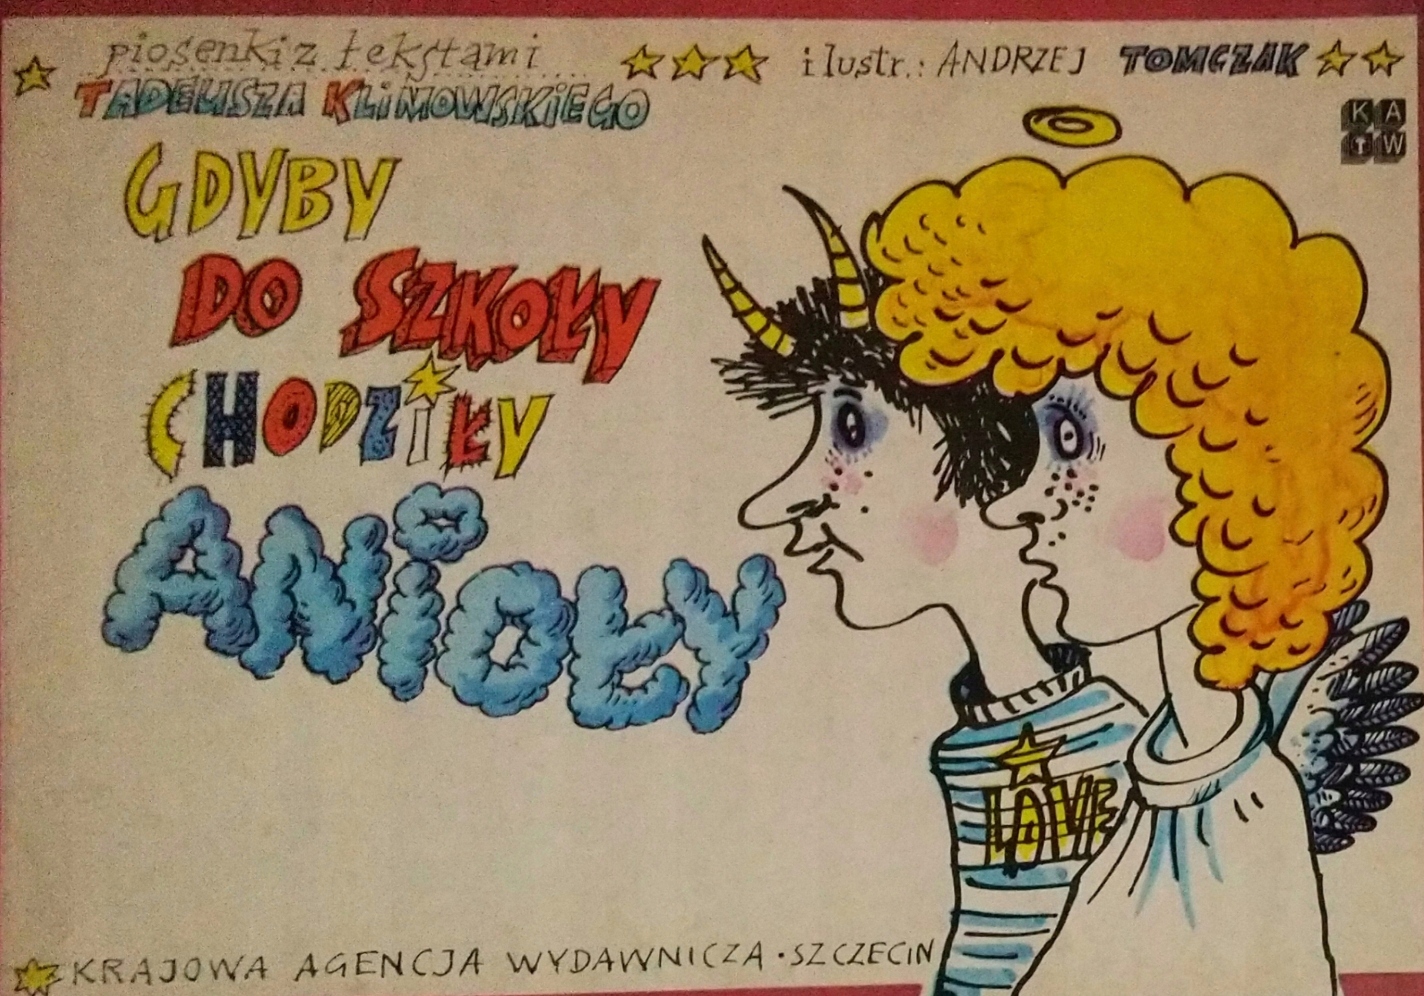 piosenki z tekstami
TADEUSZA KLIMOWSKIEGO
i lustr.: ANDRZEJ TOMCZAK
KA
TW
GDYBY
DO SZKOŁY
CHODZIŁY
ANIOŁY
LOVE
KRAJOWA AGENCJA WYDAWNICZA · SZCZECIN